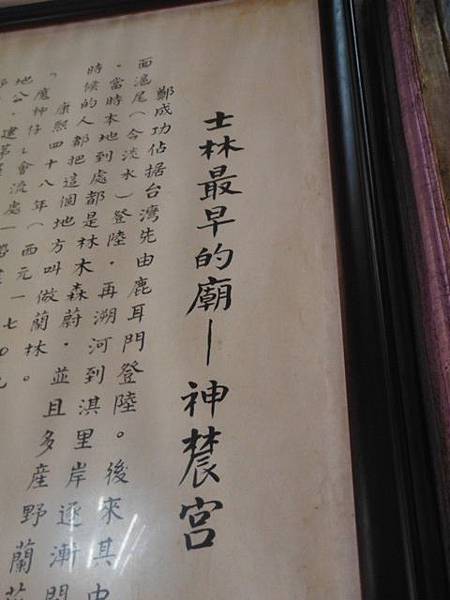 士林最早的廟—神農宮
鄭成功佔据台灣先由鹿耳門登陸。後來其中
面滬尾(今淡水)登陸.再溯河到淇里岸逐漸開
.當時本地到處都是林木森蔚.並且多產野蘭花
時候的人都把這個地方叫做蘭林。
康熙四十八年(西元一七0九
會流處一
地公.建茅